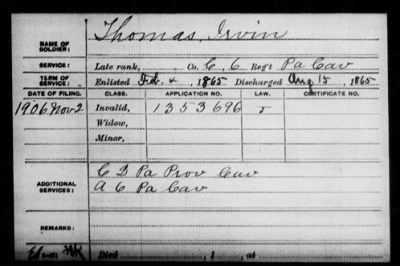 NAME OF SOLDIER: Thomas, Irvin
SERVICE: Late rank, Co. C, 6 Reg't Pa Cav
TERM OF SERVICE: Enlisted Feb. 4, 1865 Discharged Aug 15, 1865
DATE OF FILING. CLASS. APPLICATION NO. LAW. CERTIFICATE NO.
1906 Nov 2 Invalid, 1353696
Widow,
Minor,
ADDITIONAL SERVICES: C 2 Pa Prov Cav
A 6 Pa Cav
REMARKS:
Died , 1 , at